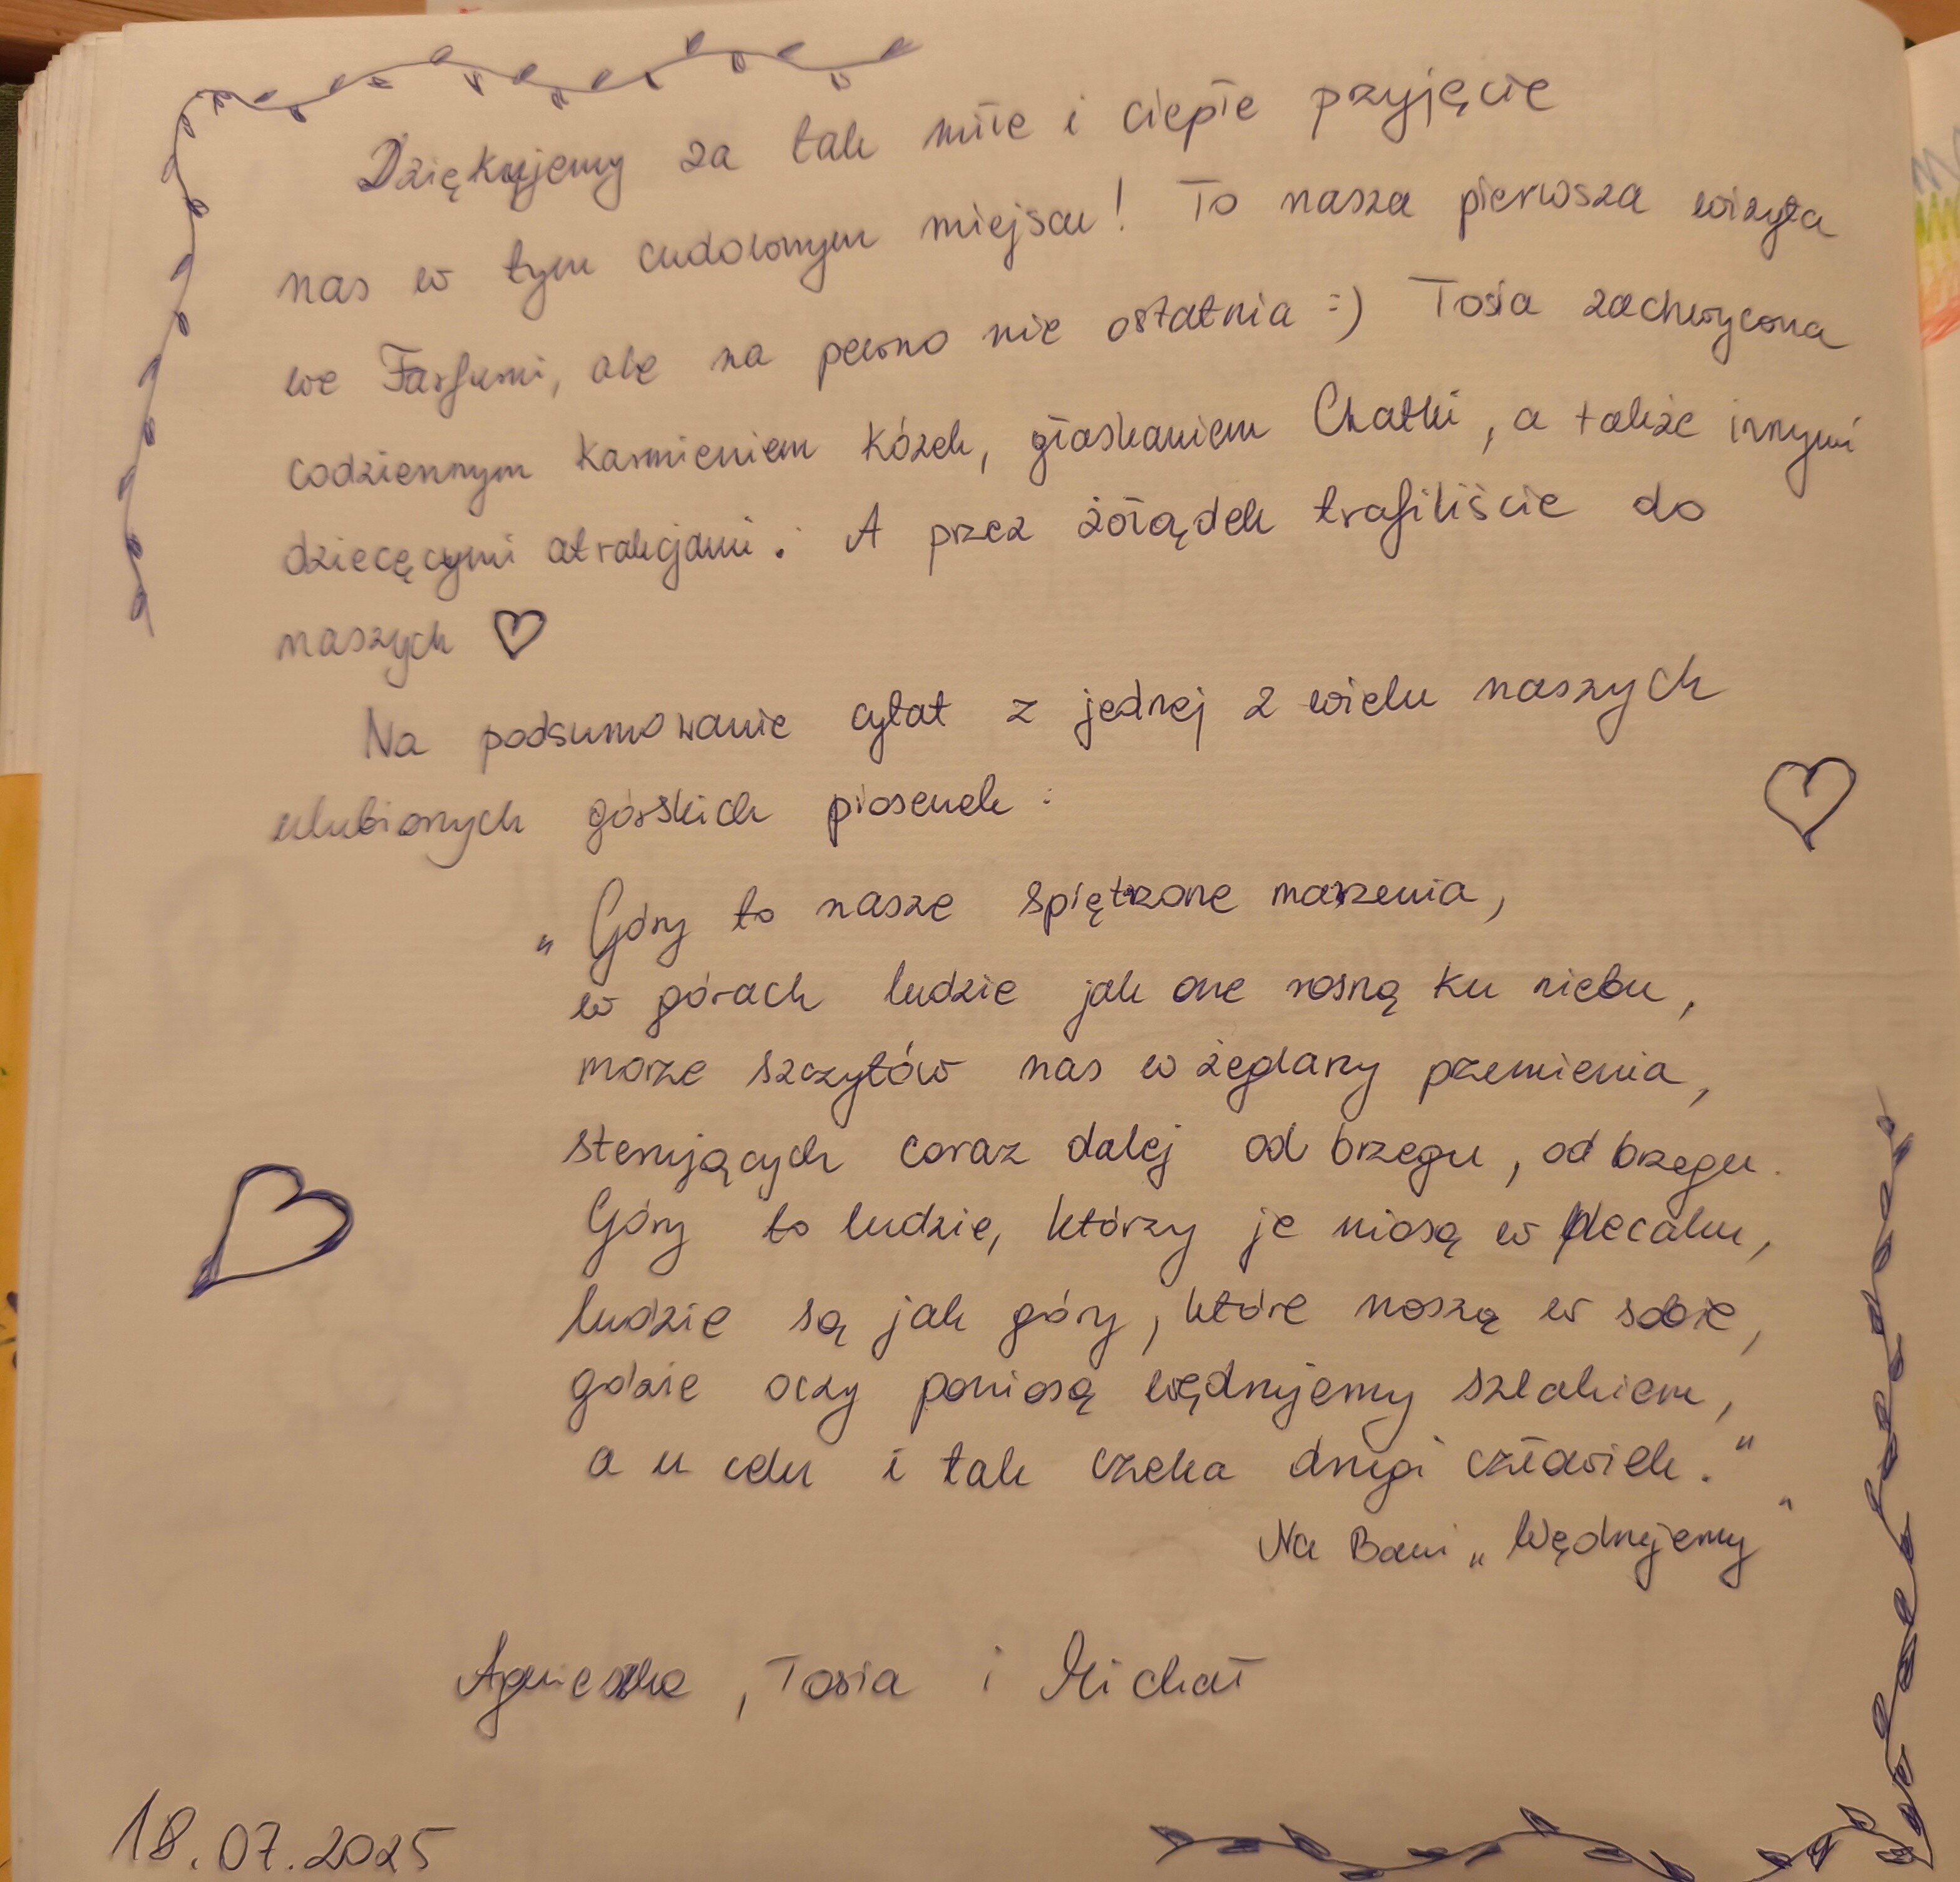 Dziękujemy za tak miłe i ciepłe przyjęcie
nas w tym cudownym miejscu! To nasza pierwsza wizyta
we Farfurni, ale na pewno nie ostatnia :) Tosia zachwycona
codziennym karmieniem kózek, głaskaniem Chatki, a także innymi
dziecęcymi atrakcjami. A przez żołądek trafiliście do
naszych ♡
Na podsumowanie cytat z jednej z wielu naszych
ulubionych górskich piosenek:
„Góry to nasze spiętrzone marzenia,
w górach ludzie jak one rosną ku niebu,
morze szczytów nas w żeglarzy przemienia,
sterujących coraz dalej od brzegu, od brzegu.
Góry to ludzie, którzy je niosą w plecaku,
ludzie są jak góry, które noszą w sobie,
gdzie oczy poniosą wędrujemy szlakiem,
a u celu i tak czeka drugi człowiek."
Na Bani „Wędrujemy"
Agnieszka, Tosia i Michał
18.07.2025